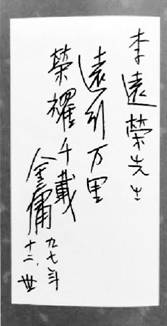 李遠荣先生
遠引万里
荣耀千載
金庸
九七年
十二、廿